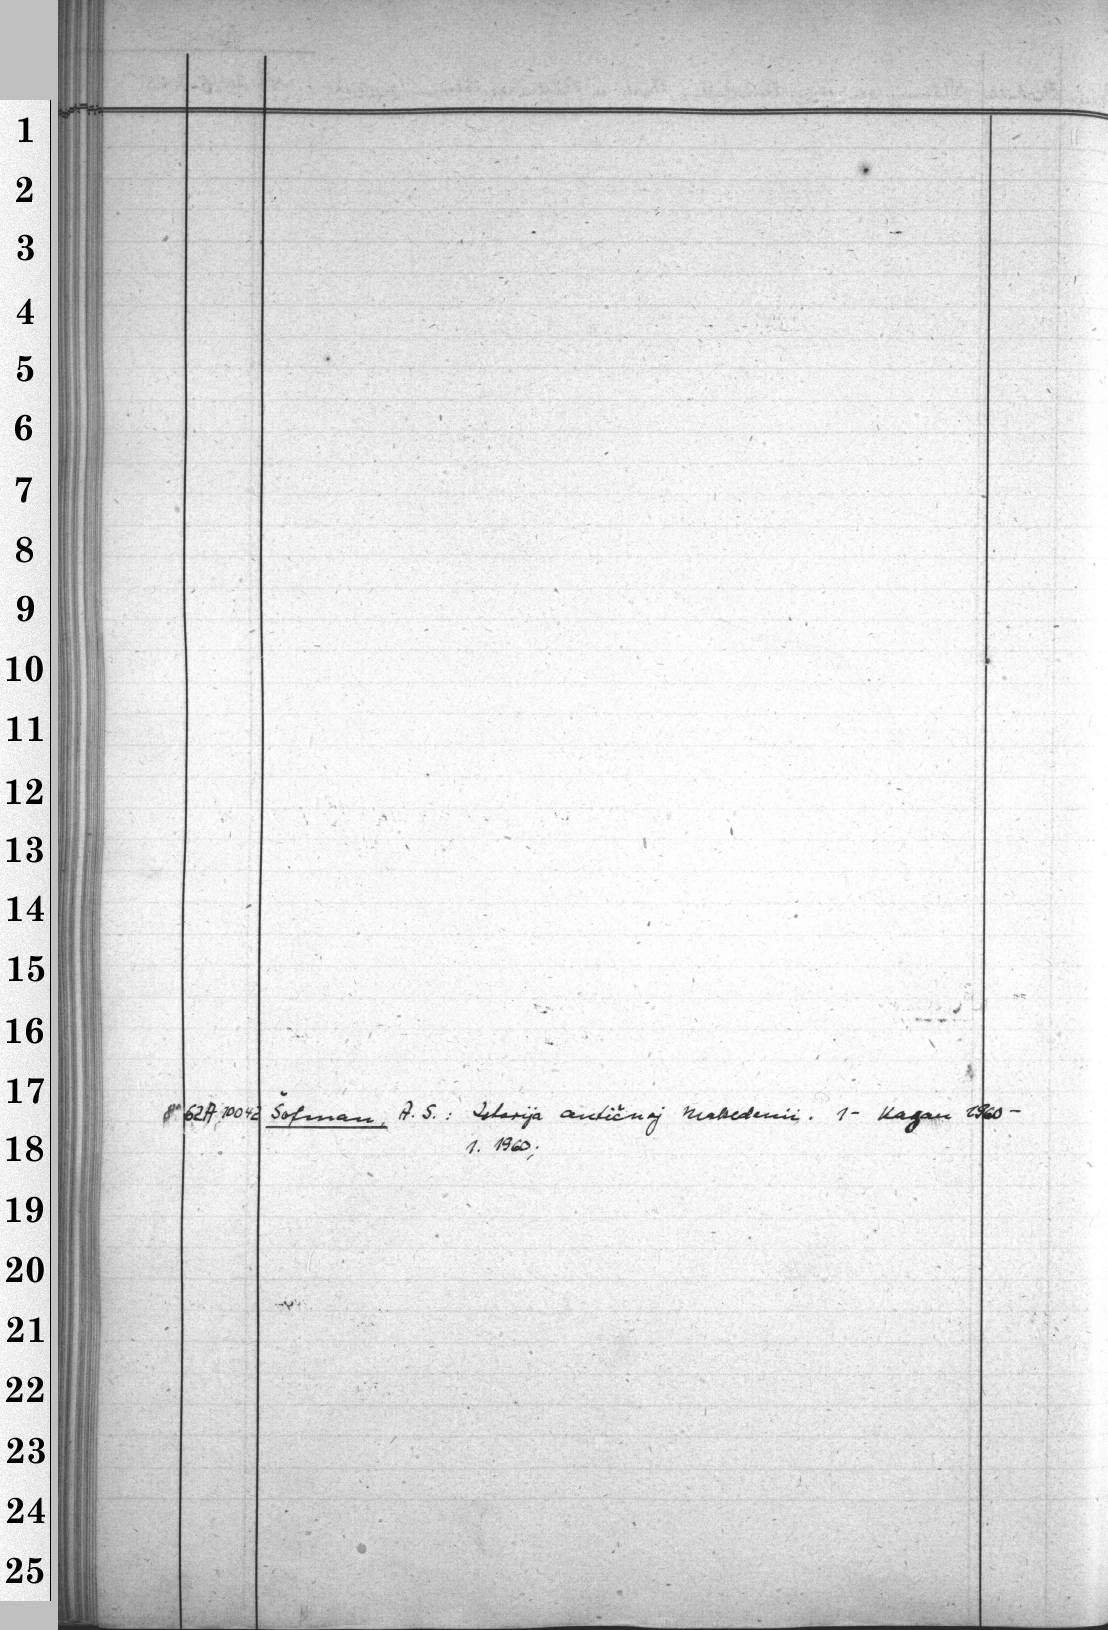 1
2
3
4
5
6
7
8
9
10
11
12
13
14
15
16
17
8° 62A.10042 Šofman, A. S.: Istorija antičnoj Makedonii. 1- Kazan 1960-
1. 1960;
18
19
20
21
22
23
24
25